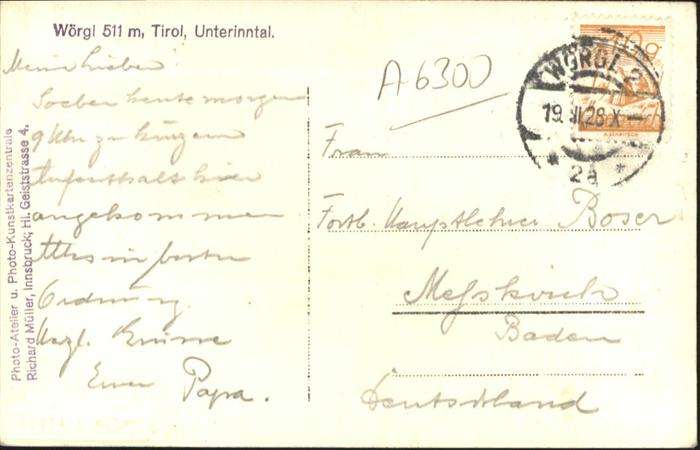 Wörgl 511 m, Tirol, Unterinntal.
Meine Lieben!
Soeben heute morgen
9 Uhr zu kurzem
Aufenthalt hier
angekommen
Alles in bester
Ordnung.
Herzl. Grüsse
Euer Papa.
Photo-Atelier u. Photo-Kunstkartenzentrale
Richard Müller, Innsbruck; Hl. Geiststrasse 4.
A6300
WÖRGL 2
19. VI. 28. X
* 2a *
Frau
Fortb. Hauptlehrer Boser
Messkirch
Baden
Deutschland